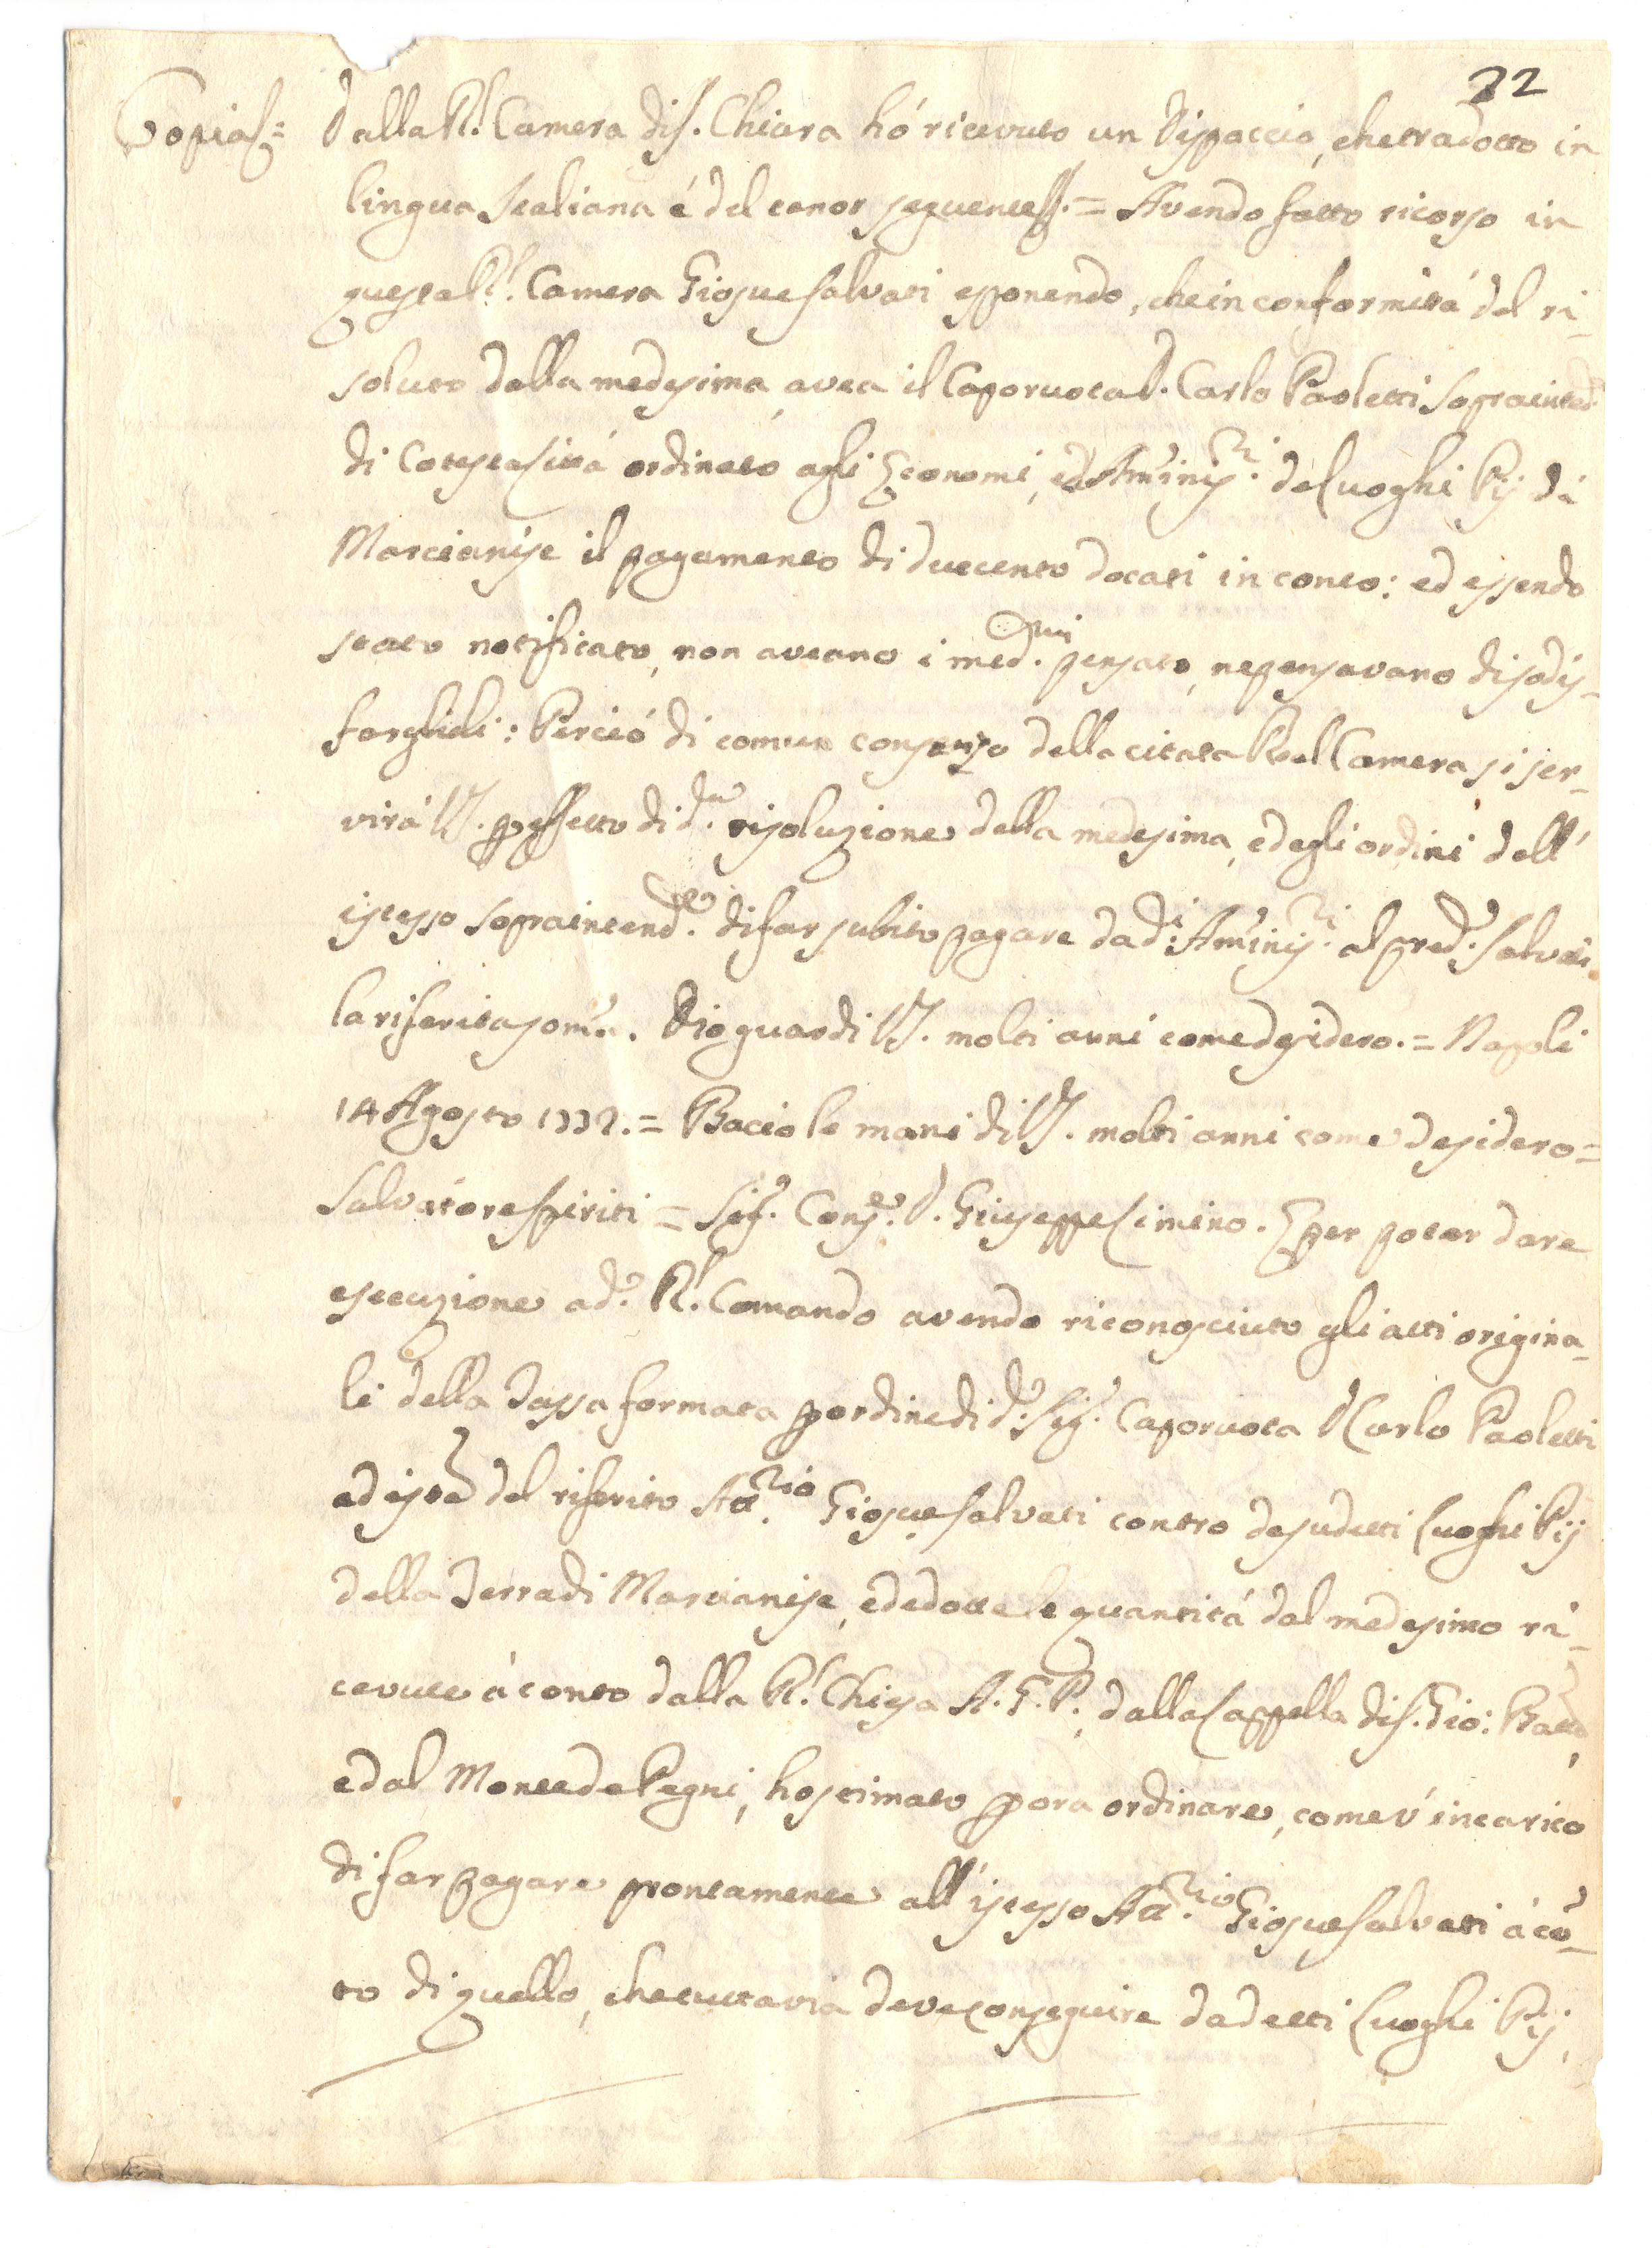 22
Copia = Dalla R.l Camera di S. Chiara hó ricevuto un Dispaccio, che tradotto in
lingua Italiana é del tenor seguente = Avendo fatto ricorso in
questa R.l Camera Giosue Salvati esponendo, che in conformitá del ri-
soluto dalla medesima, avea il Caporuota D. Carlo Paoletti Sopraintend.
di Cotesta Cittá ordinato agli Economi, ed Am'inis.ri de Luoghi Pij di
Marcianise il pagamento di duecento docati in conto: ed essendo
stato notificato, non aveano i med.mi pensato, ne pensavano di sodis-
farglieli: Perció di comun consenso della citata Real Camera si ser-
virá V.S. per effetto di d.a risoluzione della medesima, e degli ordini dell'
istesso Sopraintend.e di far subito pagare da d.i Am'inis.ri al pred.o Salvati
la riferita som'a. Dio guardi V.S. molti anni come desidero. = Napoli
14 Agosto 1772. = Bacio le mani di V.S. molti anni come desidero =
Salvatore Spiriti = Sig.r Cons.re D. Giuseppe Cimino. E per poter dare
esecuzione a d.o R.l Comando avendo riconosciuto gli atti origina-
li della Tassa formata per ordine di d.o Sig.r Caporuota D. Carlo Paoletti
ad ista del riferito Att.rio Giosue Salvati contro de sudetti Luoghi Pij
della Terra di Marcianise, e dedotte le quantitá dal medesimo ri-
cevute á conto dalla R.l Chiesa A. G. P., dalla Cappella di S. Gio: Batta,
e dal Monte de Pegni, ho stimato per ora ordinare, come v'incarico
di far pagare prontamente all'istesso Att.rio Giosue Salvati á co'-
to di quello, che tuttavia deve conseguire da detti Luoghi Pij,